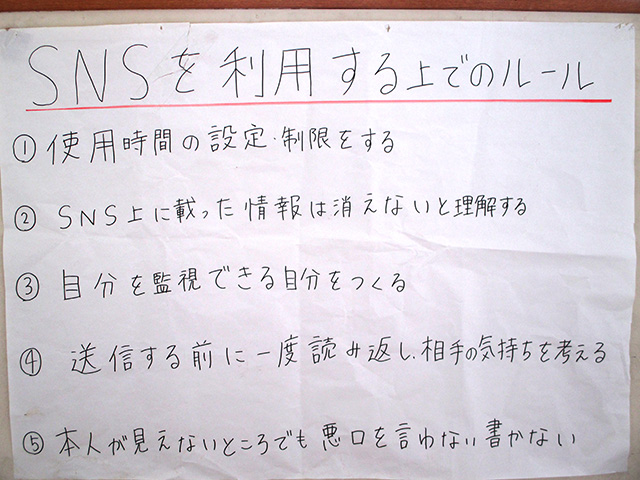 SNSを利用する上でのルール
① 使用時間の設定・制限をする
② SNS上に載った情報は消えないと理解する
③ 自分を監視できる自分をつくる
④ 送信する前に一度読み返し、相手の気持ちを考える
⑤ 本人が見えないところでも悪口を言わない書かない